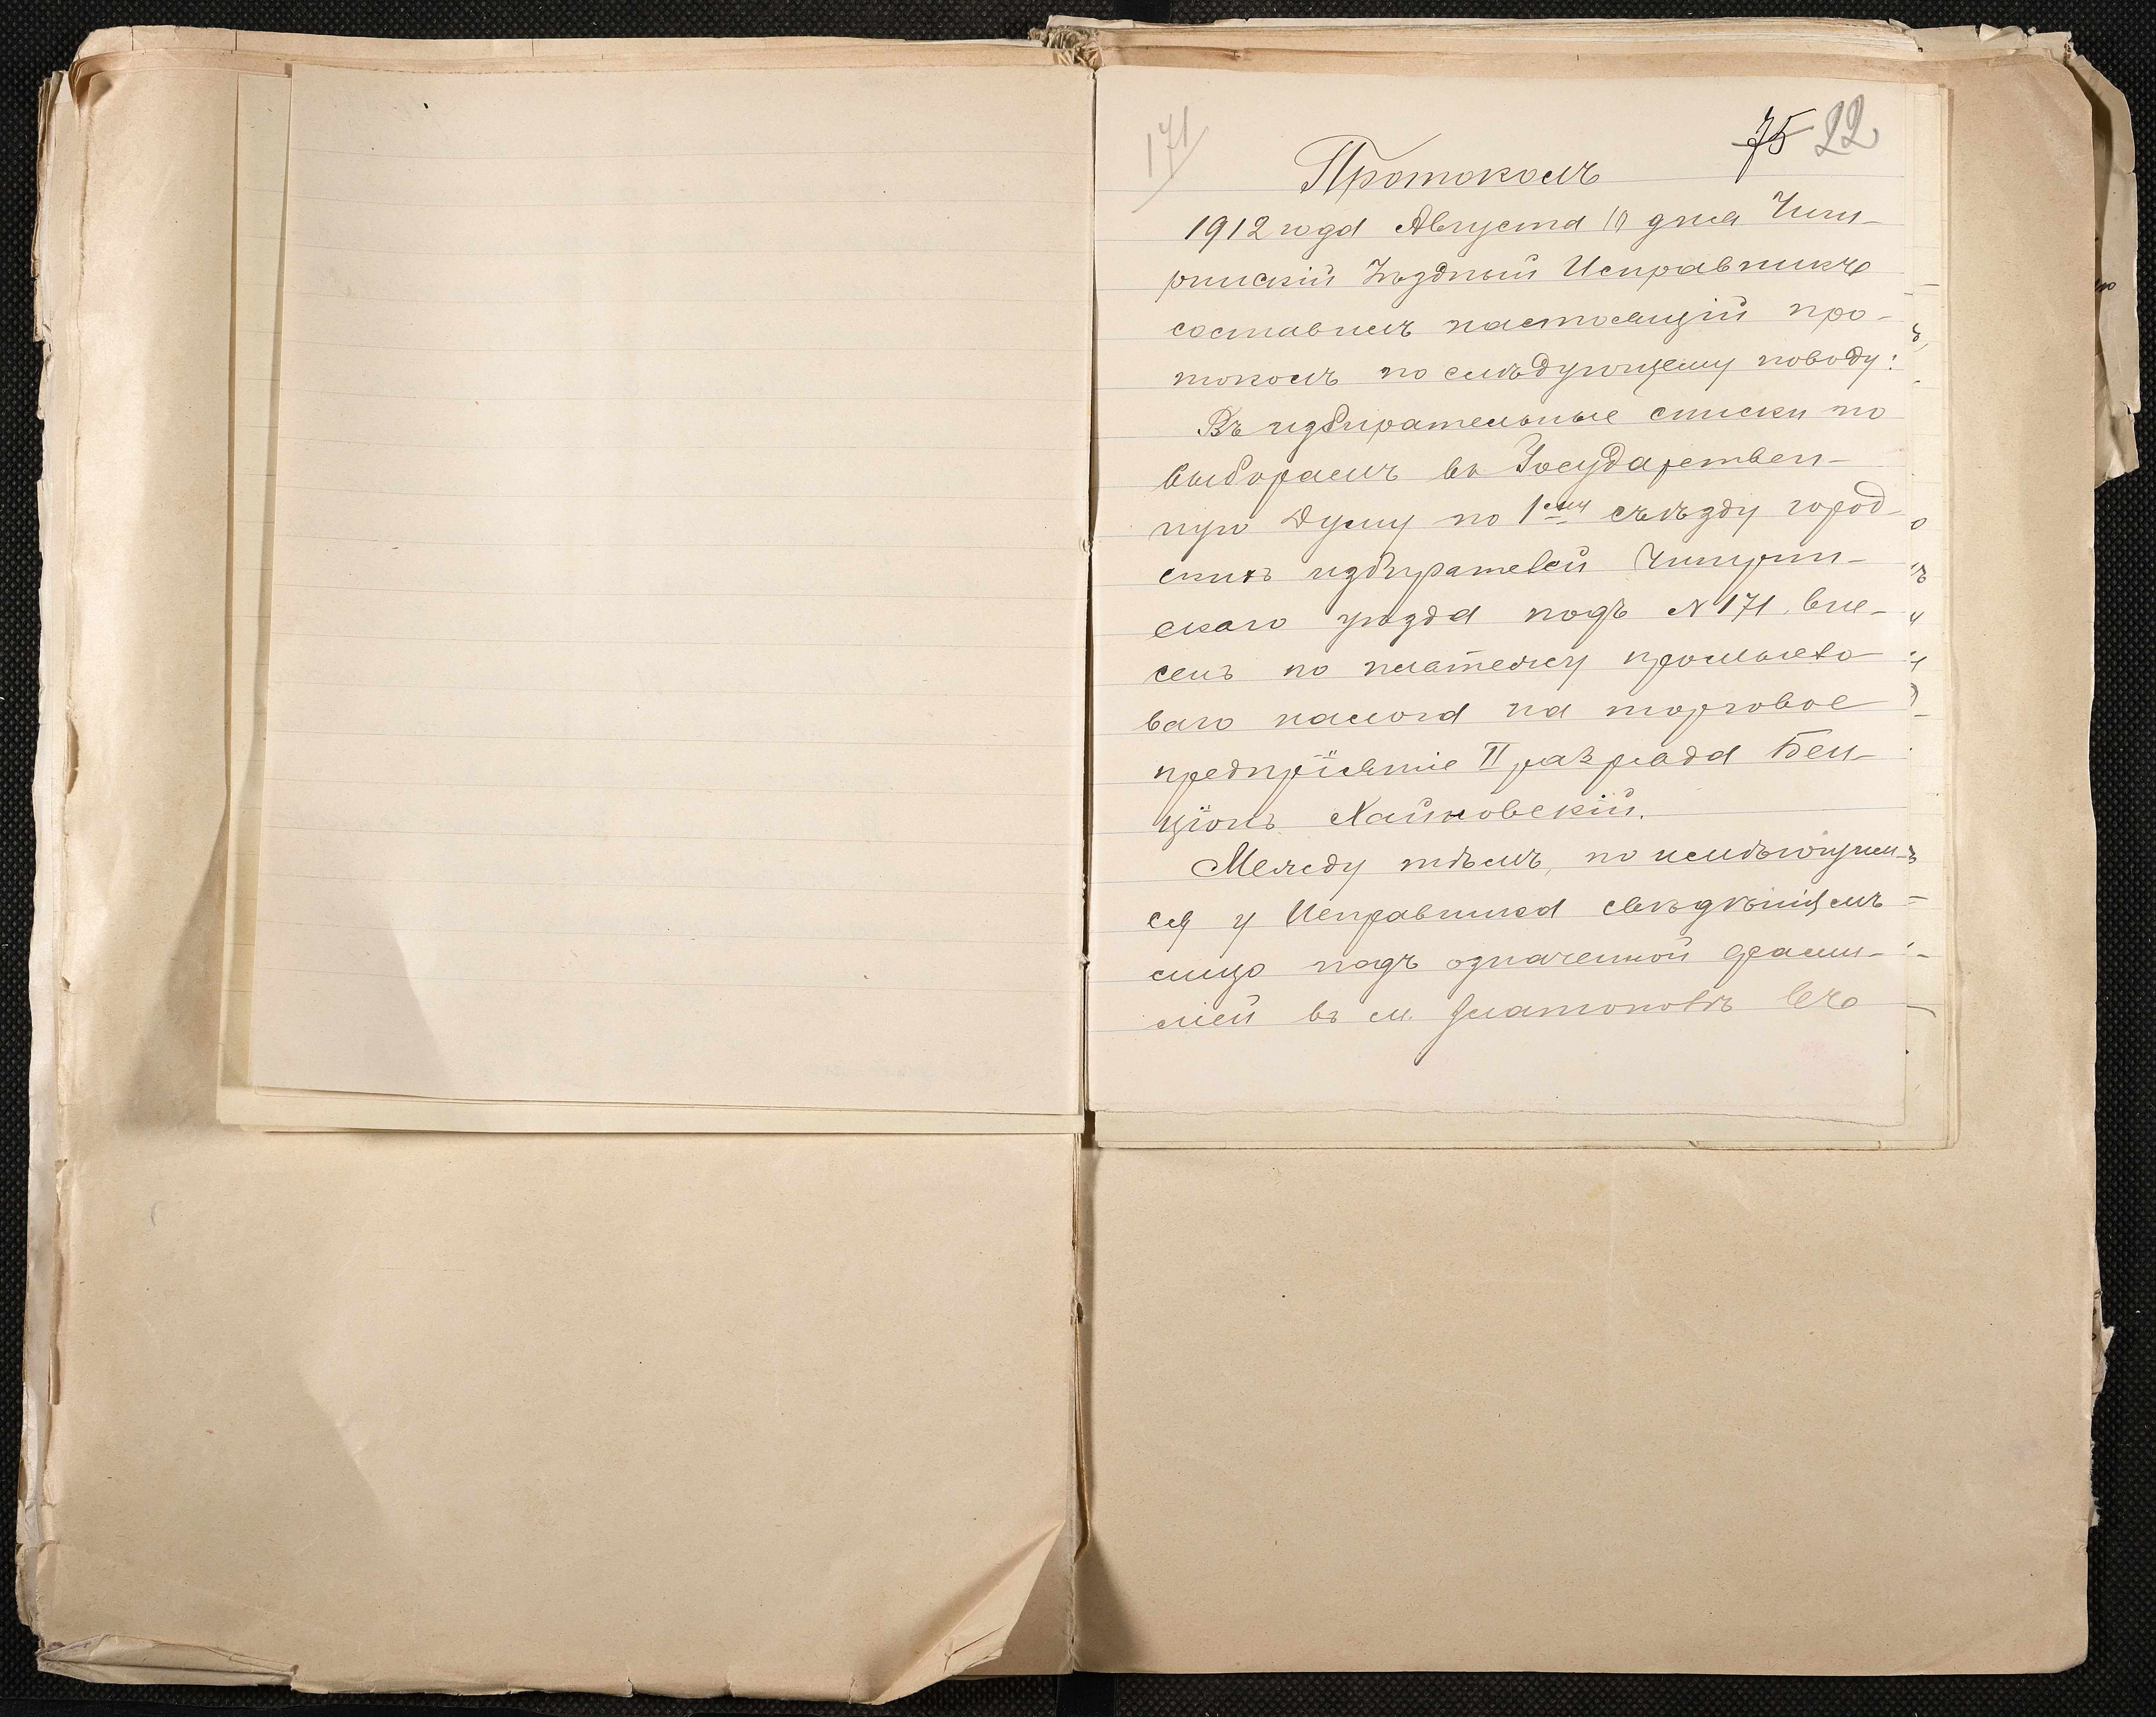 171
75 22
Протоколъ
1912 года Августа 10 дня Чиги-
ринскій Уѣздный Исправникъ
составилъ настоящій про-
токолъ по слѣдующему поводу:
Въ избирательные списки по
выборамъ въ Государствен-
ную Думу по 1ому съѣзду город-
скихъ избирателей Чигирин-
скаго уѣзда подъ № 171 вне-
сенъ по платежу промысло
ваго налога на торговое
предпріятіе II разряда Бен-
ціонъ Хайковскій.
Между тѣмъ, по имѣющим-
ся у Исправника свѣдѣніямъ
лицо подъ означенной фами-
лией въ м. Златополѣ въ